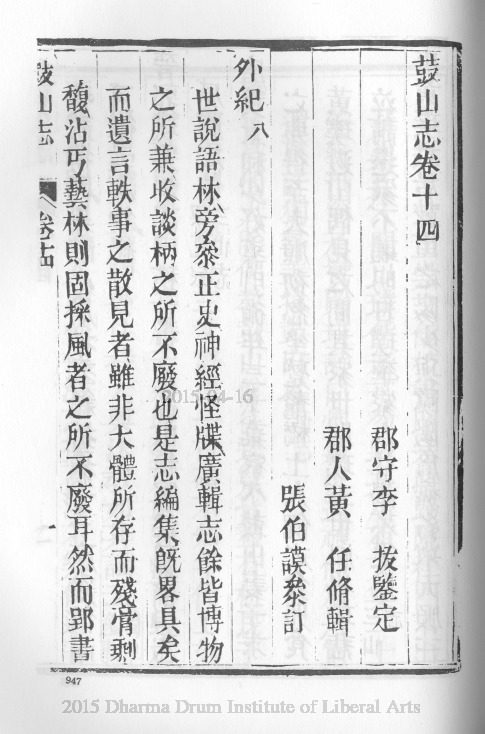 鼓山志卷十四
郡守李　拔鑒定
郡人黃　任脩輯
張伯謨叅訂
外紀八
世說語林旁叅正史神經怪牒廣輯志餘皆博物
之所兼收談柄之所不廢也是志編集旣畧具矣
而遺言軼事之散見者雖非大體所存而殘膏剩
馥沾丐藝林則固採風者之所不廢耳然而郢書
鼓山志　卷十四
947
2015-04-16
2015 Dharma Drum Institute of Liberal Arts